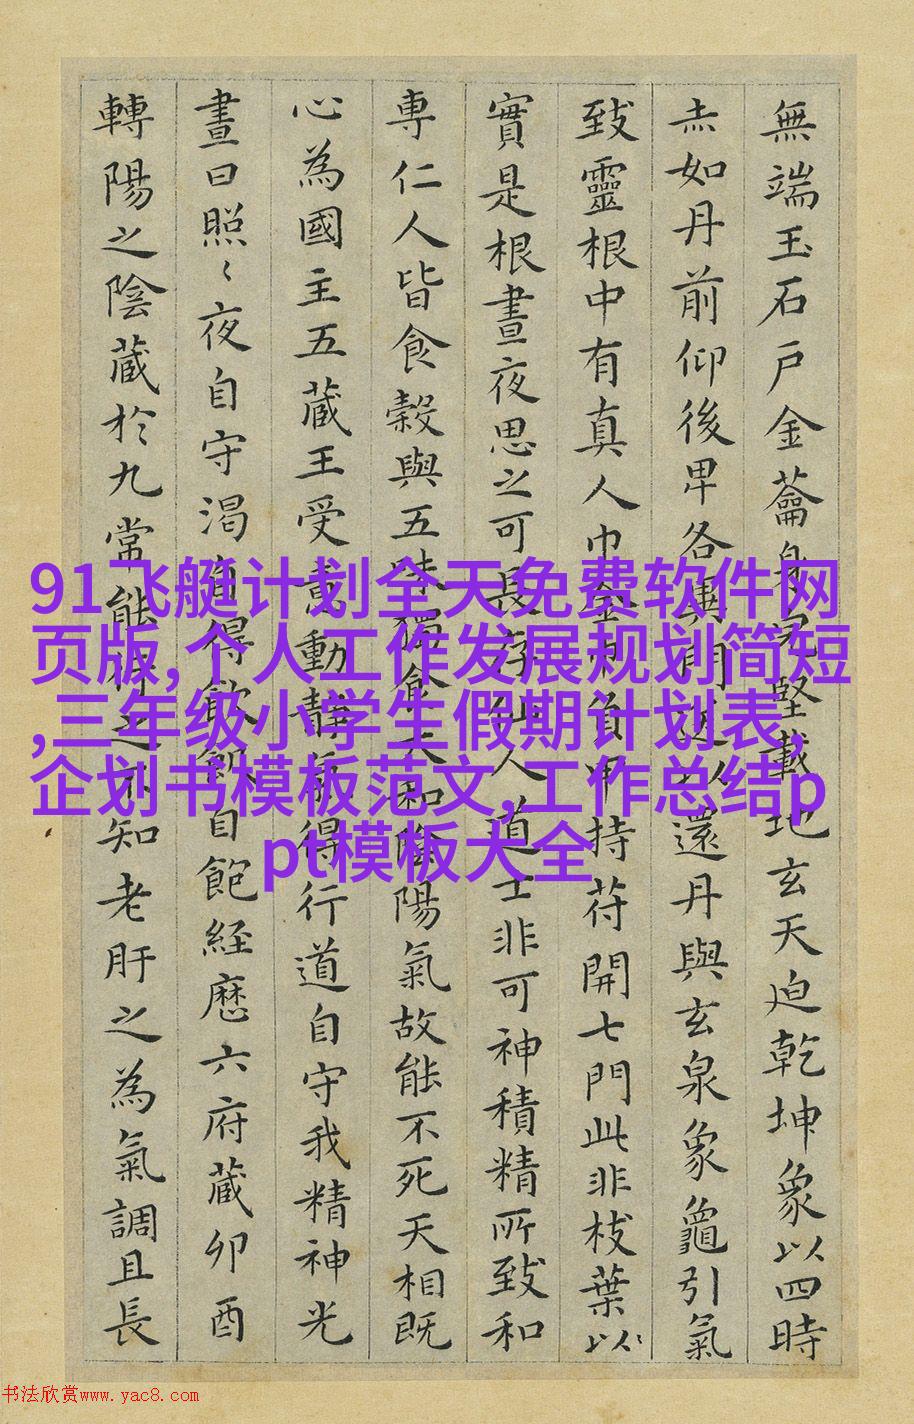 無端玉石戶金蘥身完堅載地玄天迫乾坤象以四時
赤如丹前仰後卑各異門送以還丹與玄泉象龜引氣
致靈根中有真人巾金巾負甲持苻開七門此非枝葉以
實是根晝夜思之可長存仙人道士非可神積精所致和
專仁人皆食穀與五味獨食太和陰陽氣故能不死天相既
心為國主五藏王受意動靜氣得行道自守我精神光
晝日照〻夜自守渴自得飲飢自飽経歷六府藏卯酉
轉陽之陰藏於九常能行之不知老肝之為氣調且長
91飞艇计划全天免费软件网
页版,个人工作发展规划简短
,三年级小学生假期计划表,
企划书模板范文,工作总结p
pt模板大全
书法欣赏www.yac8.com